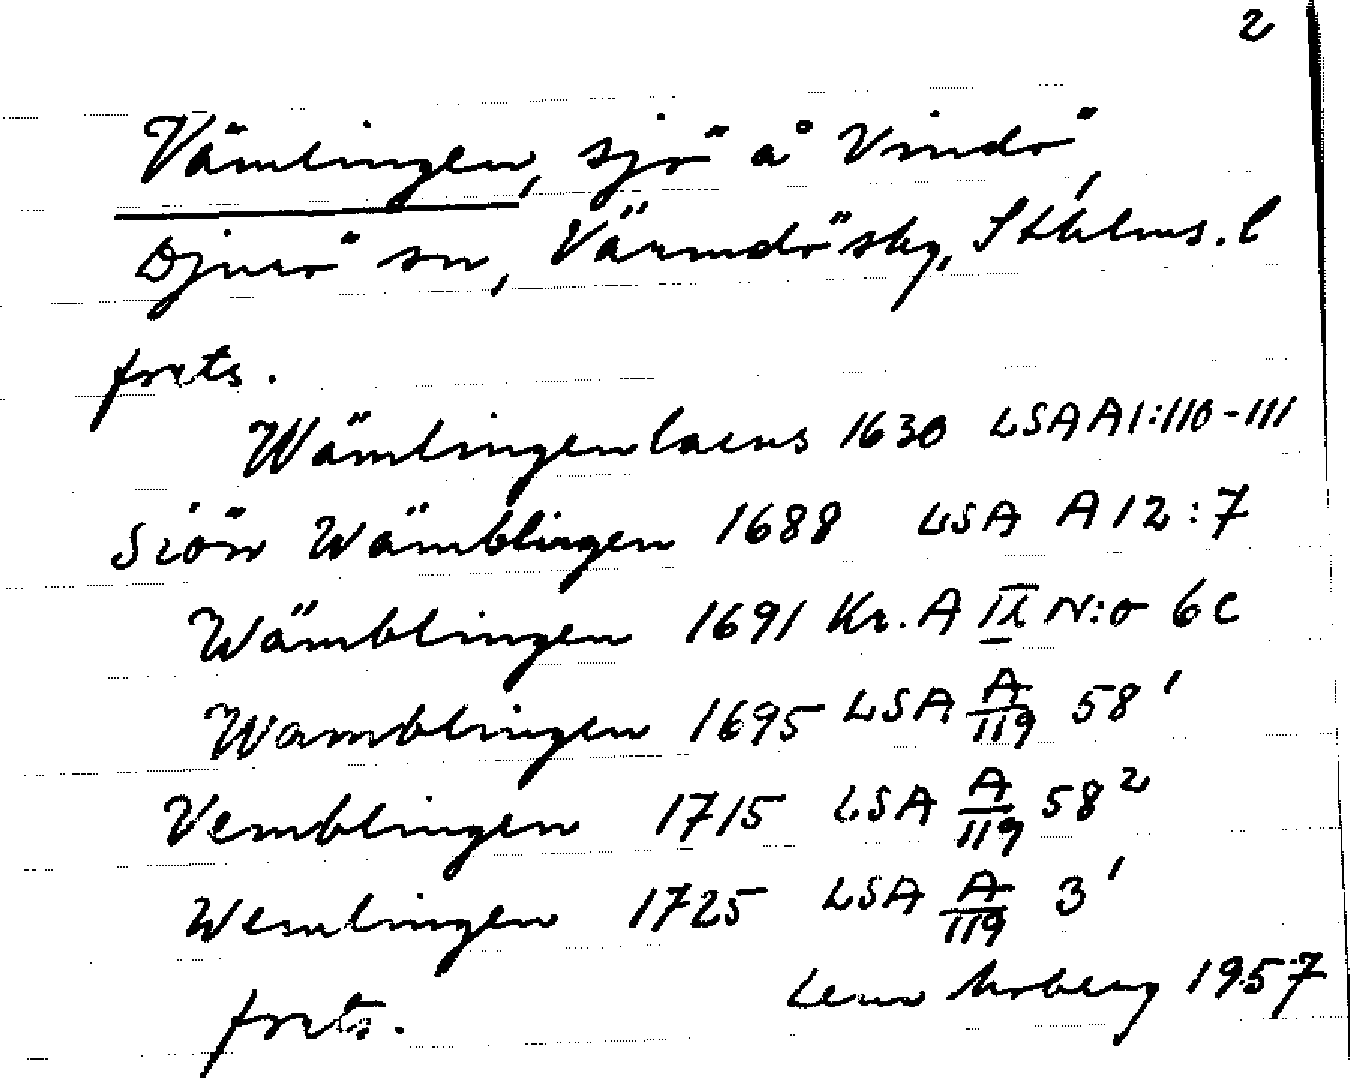 2
Vämlingen, sjö å Vindö
Djurö sn, Värmdö sky, Sthlms. l
forts.
Wämlingen lacus 1630 LSA A1:110-111
Siön Wämblingen 1688 LSA A12:7
Wämblingen 1691 Kr. A IX N:o 6c
Wamblingen 1695 LSA A/119 58¹
Vemblingen 1715 LSA A/119 58²
Wemlingen 1725 LSA A/119 3¹
forts. Lena Moberg 1957